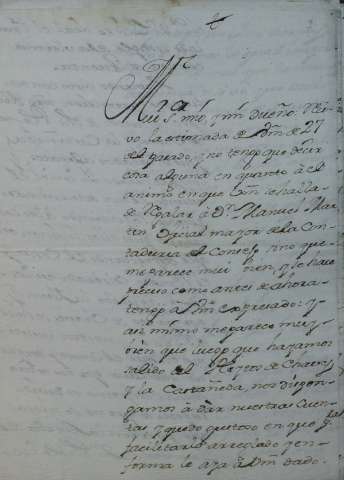 Mui S. mio, y mi Dueño: Reci-
vo la estimada de Vm de 27
del pasado, y no tengo que decir
cosa alguna en quanto à el
animo en que Vm se halla
de Regalar à Dn. Manuel Mar-
tin Oficial mayor de la Con-
taduria del Consejo, sino que
me parece mui bien, y se hace
preciso como antes de ahora
tengo à Vm expresado: y
asi mismo me parece mui
bien que luego que hayamos
salido del de
y la Castañeda, nos dispon-
gamos à dar nuestras Cuen-
tas, y quedo gustoso en que
facilitario arreglado y en
forma le aya à Vm dado.